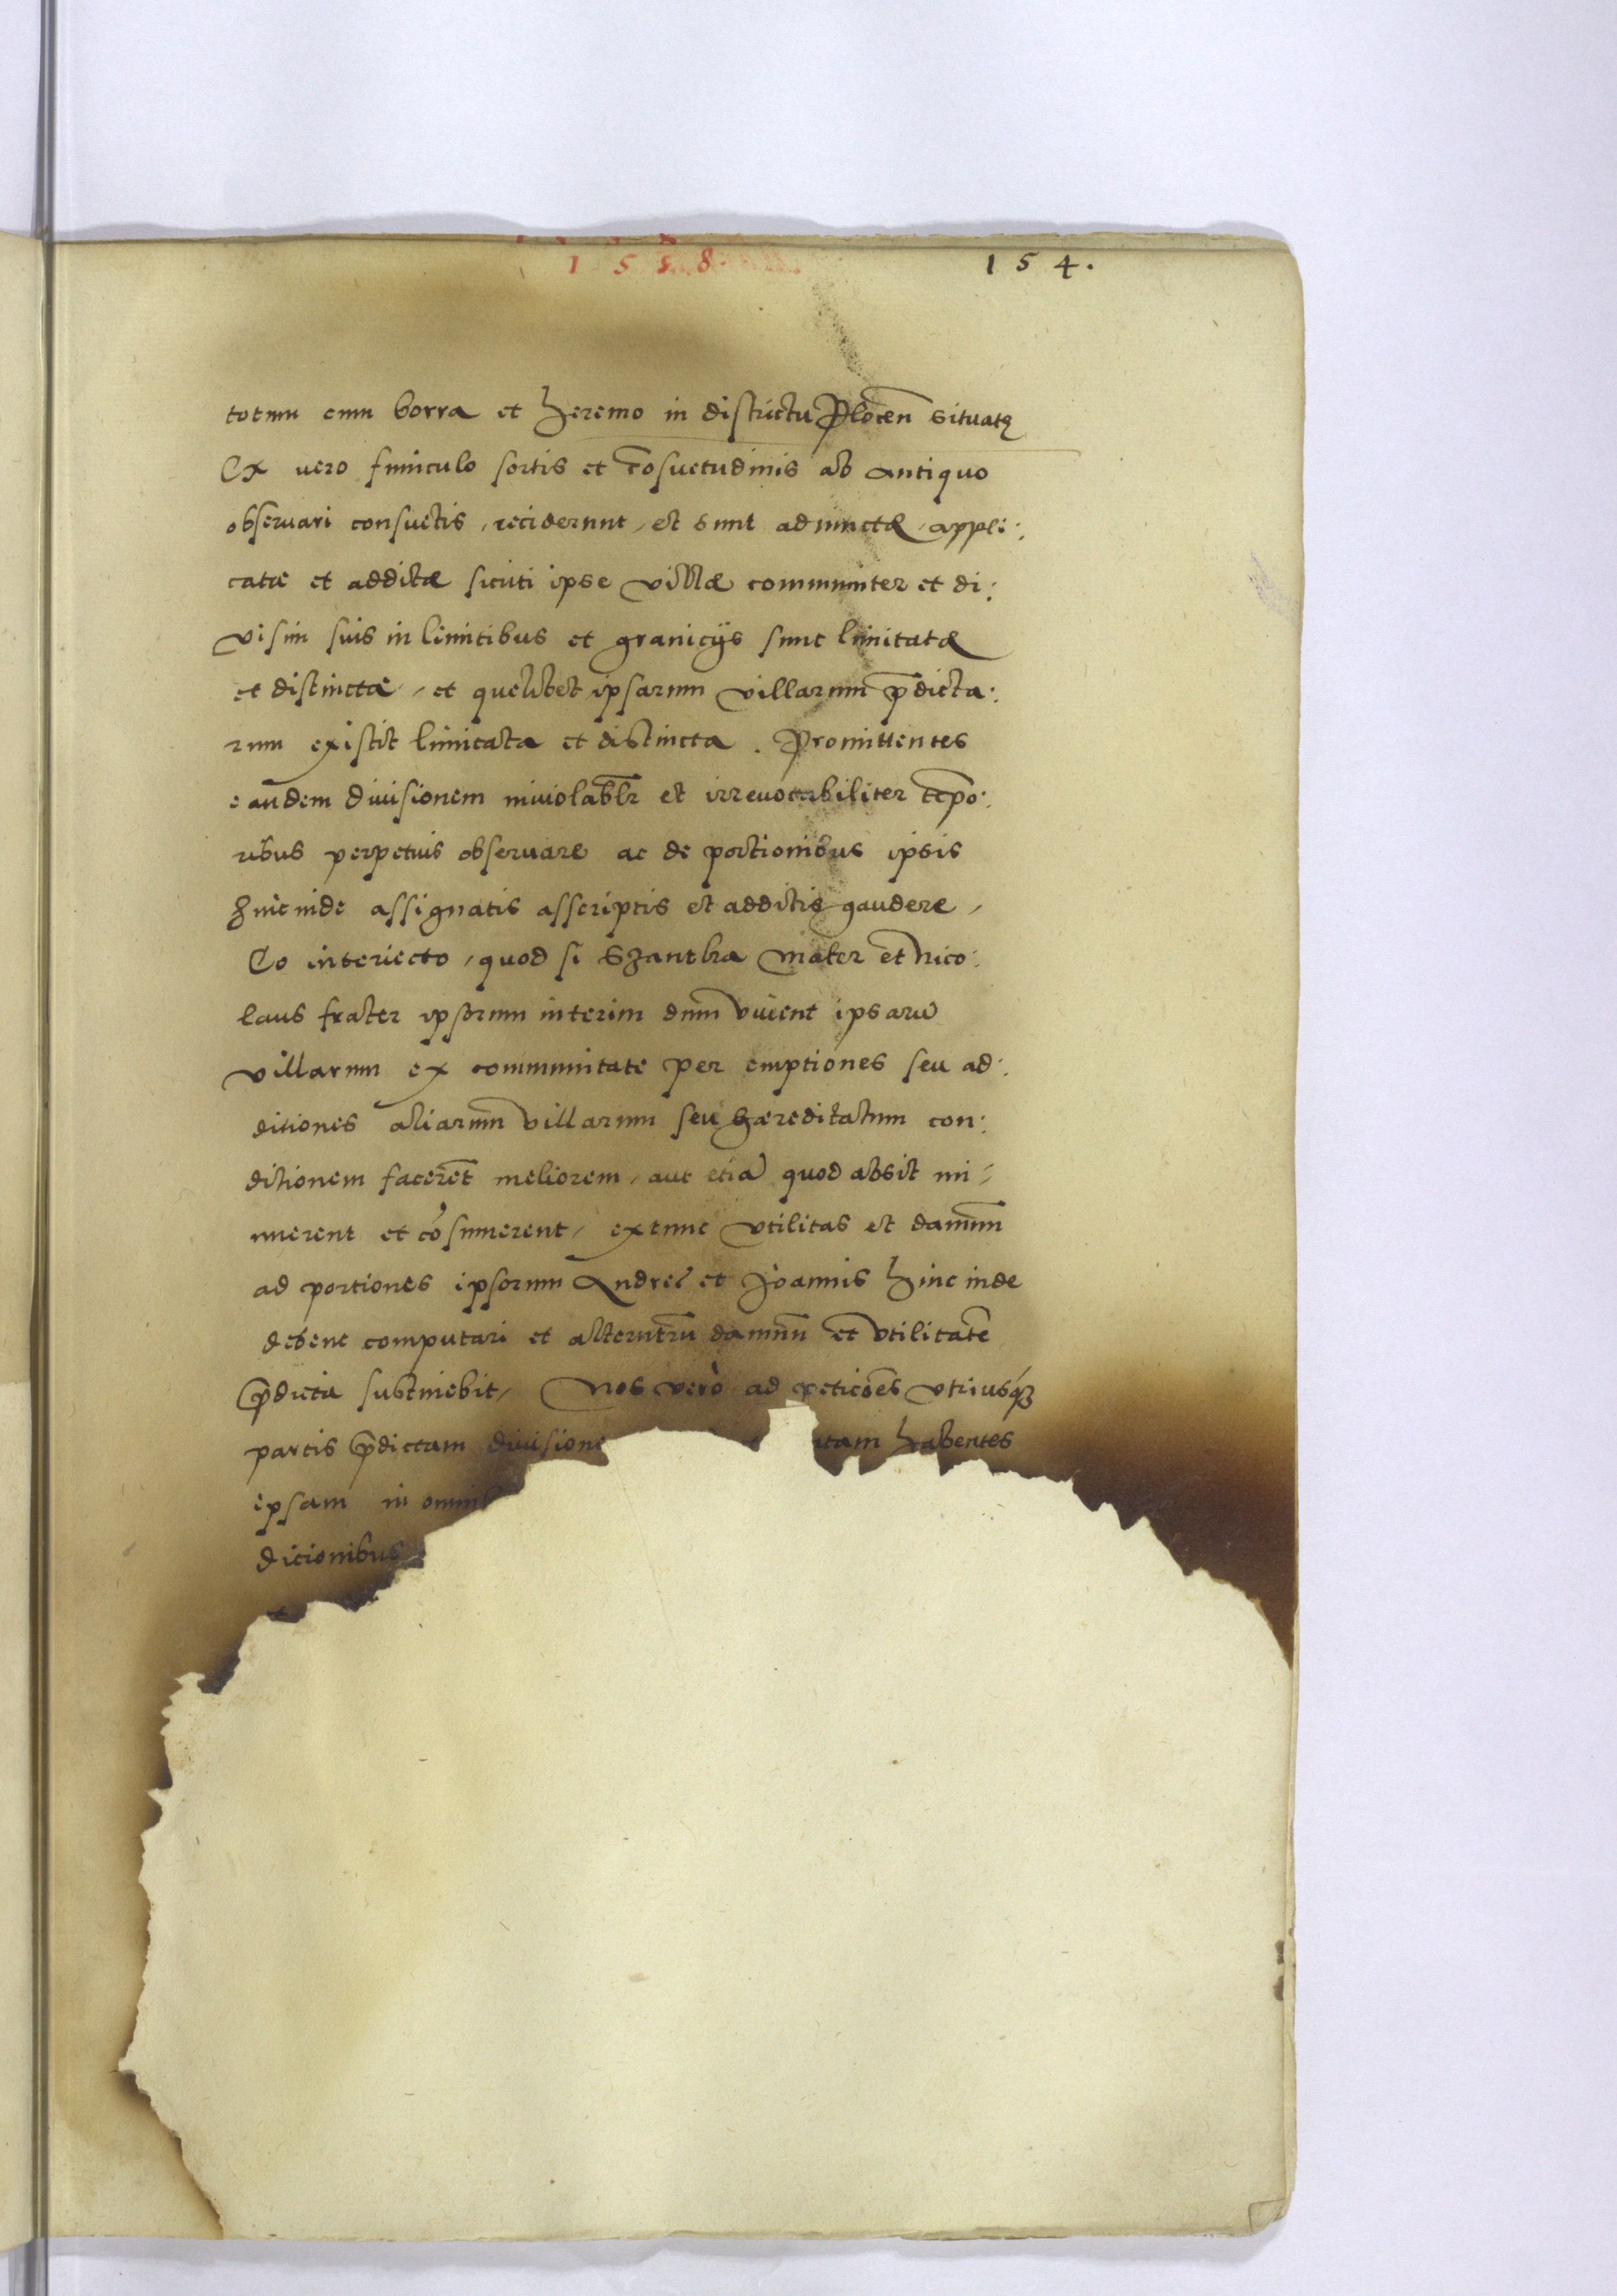 1558.
154.
totum cum borra et heremo in districtu Plocen̄ situatę
Ex vero funiculo sortis et cōsuetudinis ab antiquo
observari consuetis, reciderunt, et sunt adiunctæ, appli:
catæ et additæ sicuti ipse villæ communiter et di:
visim suis in limitibus et granicijs sunt limitatæ
et distinctæ, et quelibet ipsarum villarum p̄dicta:
rum existit limitata et distincta. Promittentes
eandem divisionem inviolabl̄r et irrevocabiliter tēpo:
ribus perpetuis observare ac de portionibus ipsis
hincinde assignatis asscriptis et additis gaudere,
Eo interiecto, quod si Szantka mater et Nico:
laus frater ipsorum interim dum vivent ipsarū
villarum ex communitate per emptiones seu ad:
ditiones aliarum villarum seu hæreditatum con:
ditionem facerēt meliorem, aut etiā quod absit mi:
nuerent et cōsumerent, extunc vtilitas et damnum
ad portiones ipsorum Andreę et Joannis hinc inde
debent computari et alterutrū damnū et vtilitatē
p̄dicta sustinebit, Nos verò ad peticiōes vtriusq́ꝫ
partis p̄dictam divisione tam habentes
ipsam in omnib
dicionibus